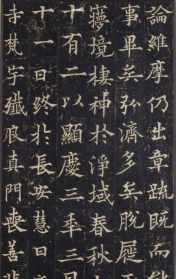 論維摩仍出章疏既而
事畢矣弘濟多矣脫屣
穢境棲神於淨域春秋
十有二以顯慶三年三
十一日終於長安慧日
寺梵宇殲良真門喪善